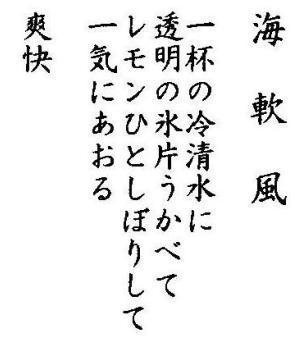 海軟風
一杯の冷清水に
透明の氷片うかべて
レモンひとしぼりして
一気にあおる
爽快